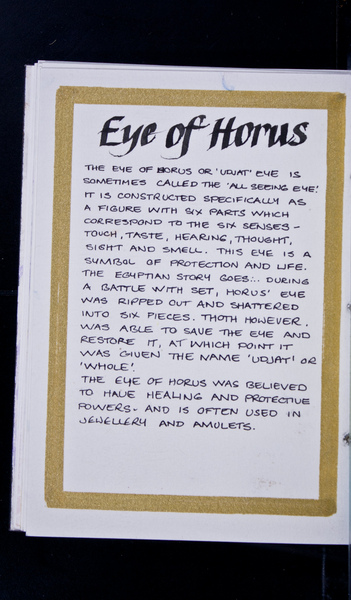 Eye of Horus
THE EYE OF HORUS OR 'UDJAT' EYE IS
SOMETIMES CALLED THE 'ALL SEEING EYE'.
IT IS CONSTRUCTED SPECIFICALLY AS
A FIGURE WITH SIX PARTS WHICH
CORRESPOND TO THE SIX SENSES -
TOUCH, TASTE, HEARING, THOUGHT,
SIGHT AND SMELL. THIS EYE IS A
SYMBOL OF PROTECTION AND LIFE.
THE EGYPTIAN STORY GOES... DURING
A BATTLE WITH SET, HORUS' EYE
WAS RIPPED OUT AND SHATTERED
INTO SIX PIECES. THOTH HOWEVER,
WAS ABLE TO SAVE THE EYE AND
RESTORE IT, AT WHICH POINT IT
WAS GIVEN THE NAME 'UDJAT' OR
'WHOLE'.
THE EYE OF HORUS WAS BELIEVED
TO HAVE HEALING AND PROTECTIVE
POWERS. AND IS OFTEN USED IN
JEWELLERY AND AMULETS.